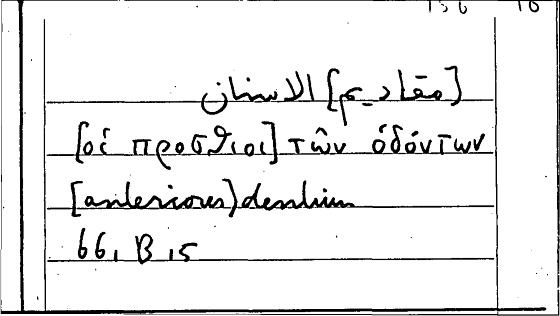 [مقاديم] الاسنان
[οἱ προσθιοι] τῶν ὀδόντων
[anteriores] dentium
66, B 15